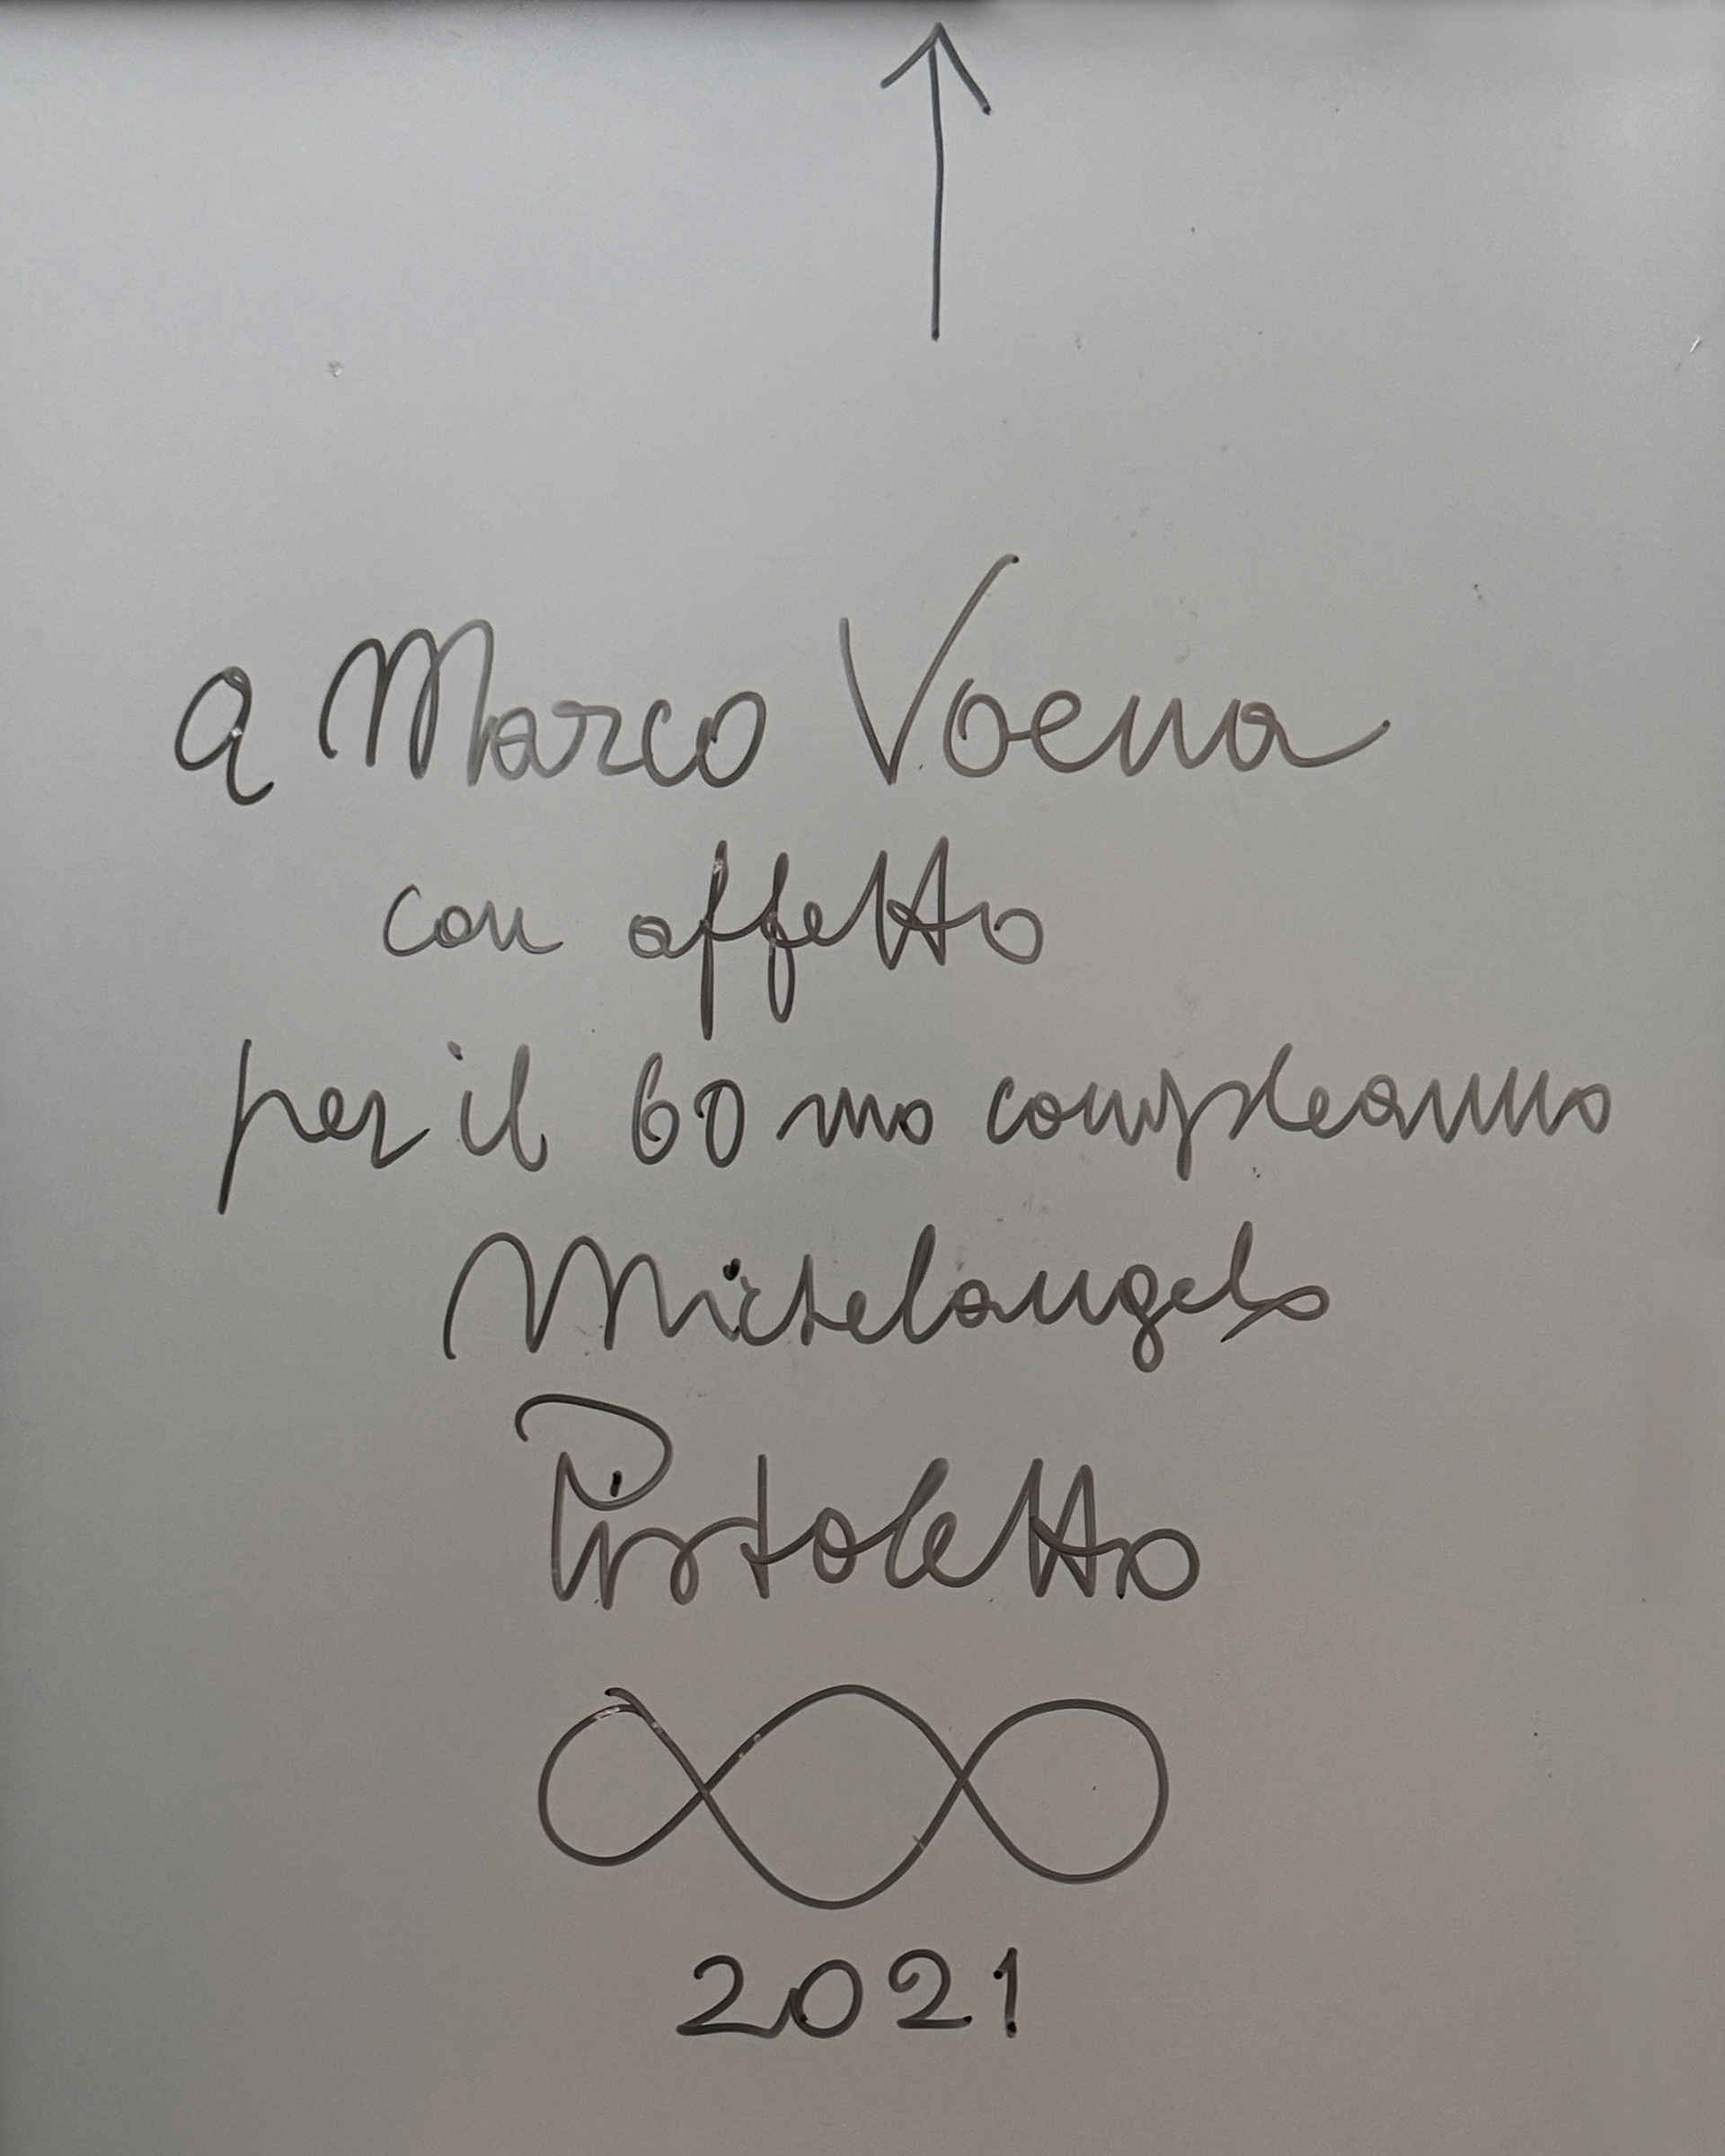 a Marco Voena
con affetto
per il 60 mo compleanno
Michelangelo
Pistoletto
2021